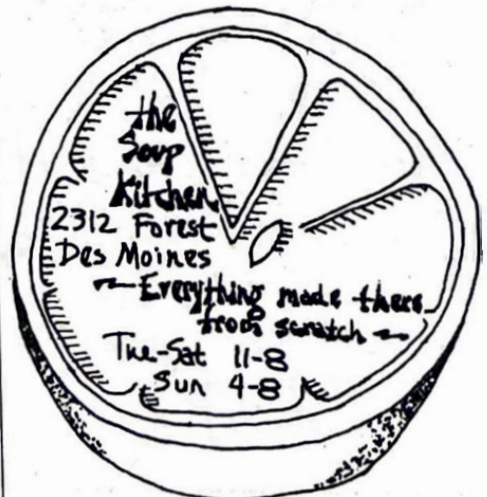 the
Soup
Kitchen
2312 Forest
Des Moines
~Everything made there
from scratch~
Tue-Sat 11-8
Sun 4-8